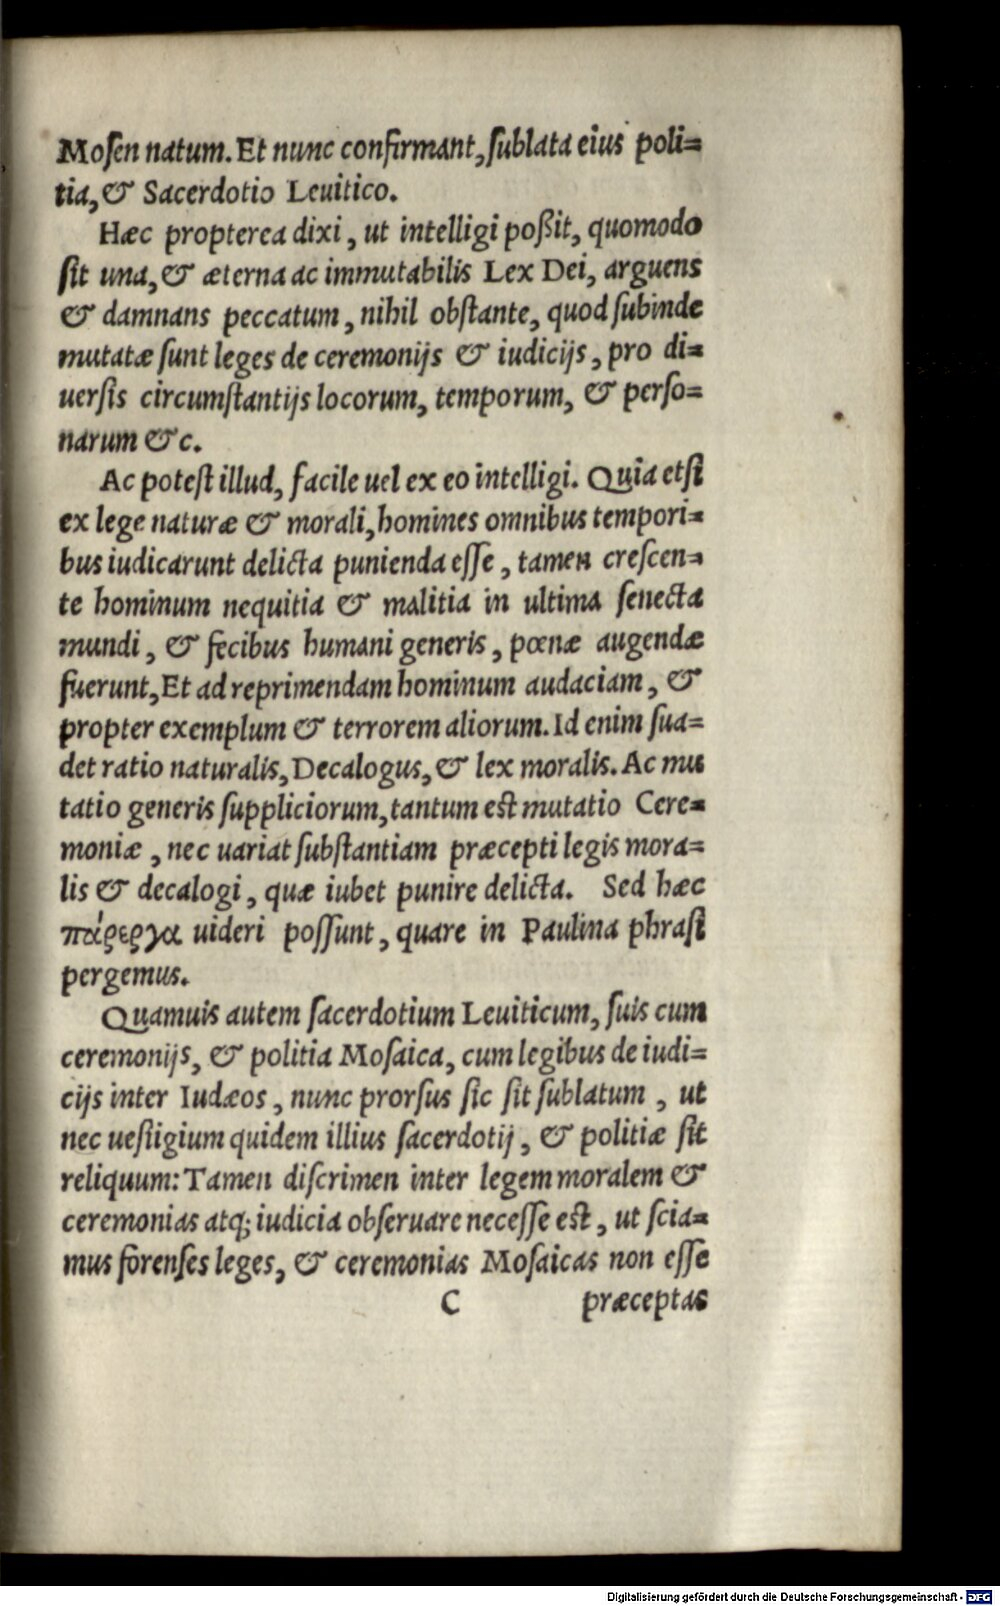 Moſen natum. Et nunc confirmant, ſublata eius poli=
tia, & Sacerdotio Leuitico.
Hæc propterea dixi, ut intelligi poßit, quomodo
ſit una, & æterna ac immutabilis Lex Dei, arguens
& damnans peccatum, nihil obſtante, quod ſubinde
mutatæ ſunt leges de ceremonijs & iudicijs, pro di=
uerſis circumſtantijs locorum, temporum, & perſo=
narum &c.
Ac poteſt illud, facile uel ex eo intelligi. Quia etſi
ex lege naturæ & morali, homines omnibus tempori=
bus iudicarunt delicta punienda eſſe, tamen creſcen=
te hominum nequitia & malitia in ultima ſenecta
mundi, & fecibus humani generis, pœnæ augendæ
fuerunt, Et ad reprimendam hominum audaciam, &
propter exemplum & terrorem aliorum. Id enim ſua=
det ratio naturalis, Decalogus, & lex moralis. Ac mu=
tatio generis ſuppliciorum, tantum eſt mutatio Cere=
moniæ, nec uariat ſubſtantiam præcepti legis mora=
lis & decalogi, quæ iubet punire delicta. Sed hæc
πάρεργα uideri poſſunt, quare in Paulina phraſi
pergemus.
Quamuis autem ſacerdotium Leuiticum, ſuis cum
ceremonijs, & politia Moſaica, cum legibus de iudi=
cijs inter Iudæos, nunc prorſus ſic ſit ſublatum, ut
nec ueſtigium quidem illius ſacerdotij, & politiæ ſit
reliquum: Tamen diſcrimen inter legem moralem &
ceremonias atq; iudicia obſeruare neceſſe eſt, ut ſcia=
mus forenſes leges, & ceremonias Moſaicas non eſſe
C præceptas
Digitalisierung gefördert durch die Deutsche Forschungsgemeinschaft - DFG